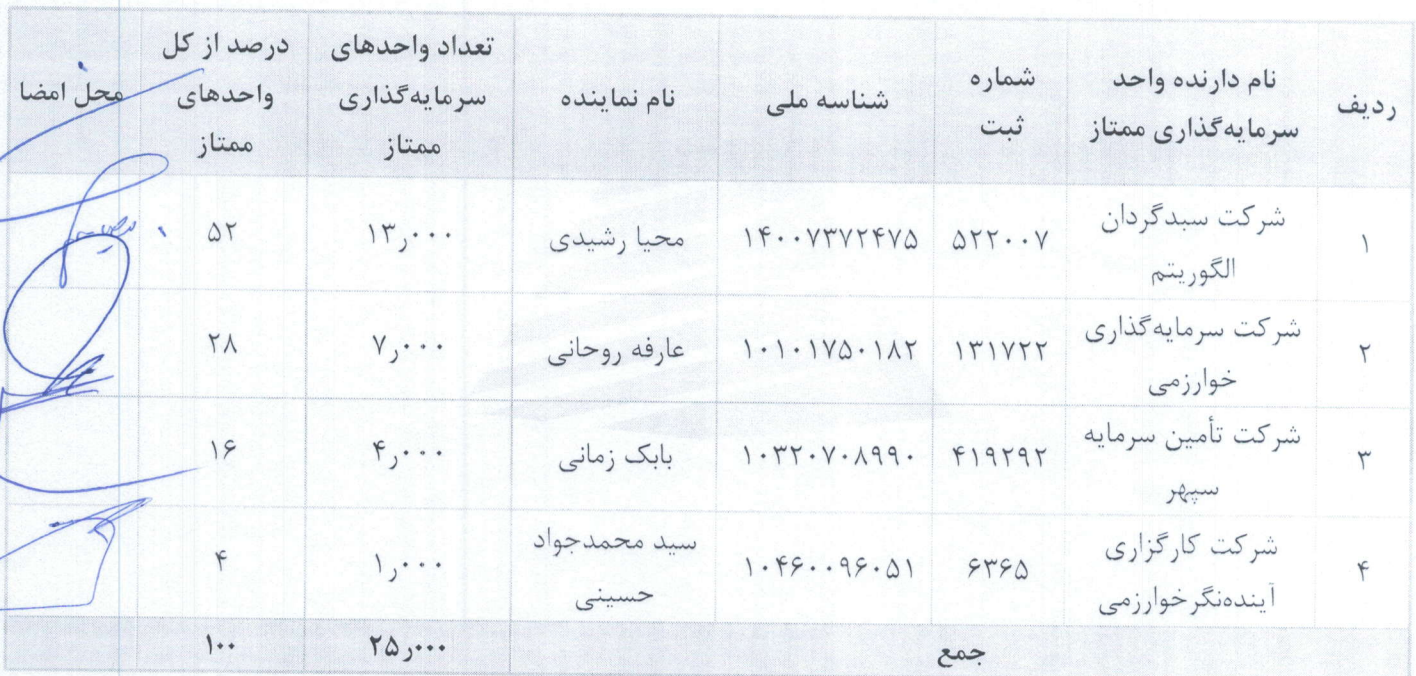 ردیف نام دارنده واحد سرمایه‌گذاری ممتاز شماره ثبت شناسه ملی نام نماینده تعداد واحدهای سرمایه‌گذاری ممتاز درصد از کل واحدهای ممتاز محل امضا
۱ شرکت سبدگردان الگوریتم ۵۲۲۰۰۷ ۱۴۰۰۷۳۷۲۴۷۵ محیا رشیدی ۱۳٫۰۰۰ ۵۲
۲ شرکت سرمایه‌گذاری خوارزمی ۱۳۱۷۲۲ ۱۰۱۰۱۷۵۰۱۸۲ عارفه روحانی ۷٫۰۰۰ ۲۸
۳ شرکت تأمین سرمایه سپهر ۴۱۹۲۹۲ ۱۰۳۲۰۷۰۸۹۹۰ بابک زمانی ۴٫۰۰۰ ۱۶
۴ شرکت کارگزاری آینده‌نگرخوارزمی ۶۳۶۵ ۱۰۴۶۰۰۹۶۰۵۱ سید محمدجواد حسینی ۱٫۰۰۰ ۴
جمع ۲۵٫۰۰۰ ۱۰۰